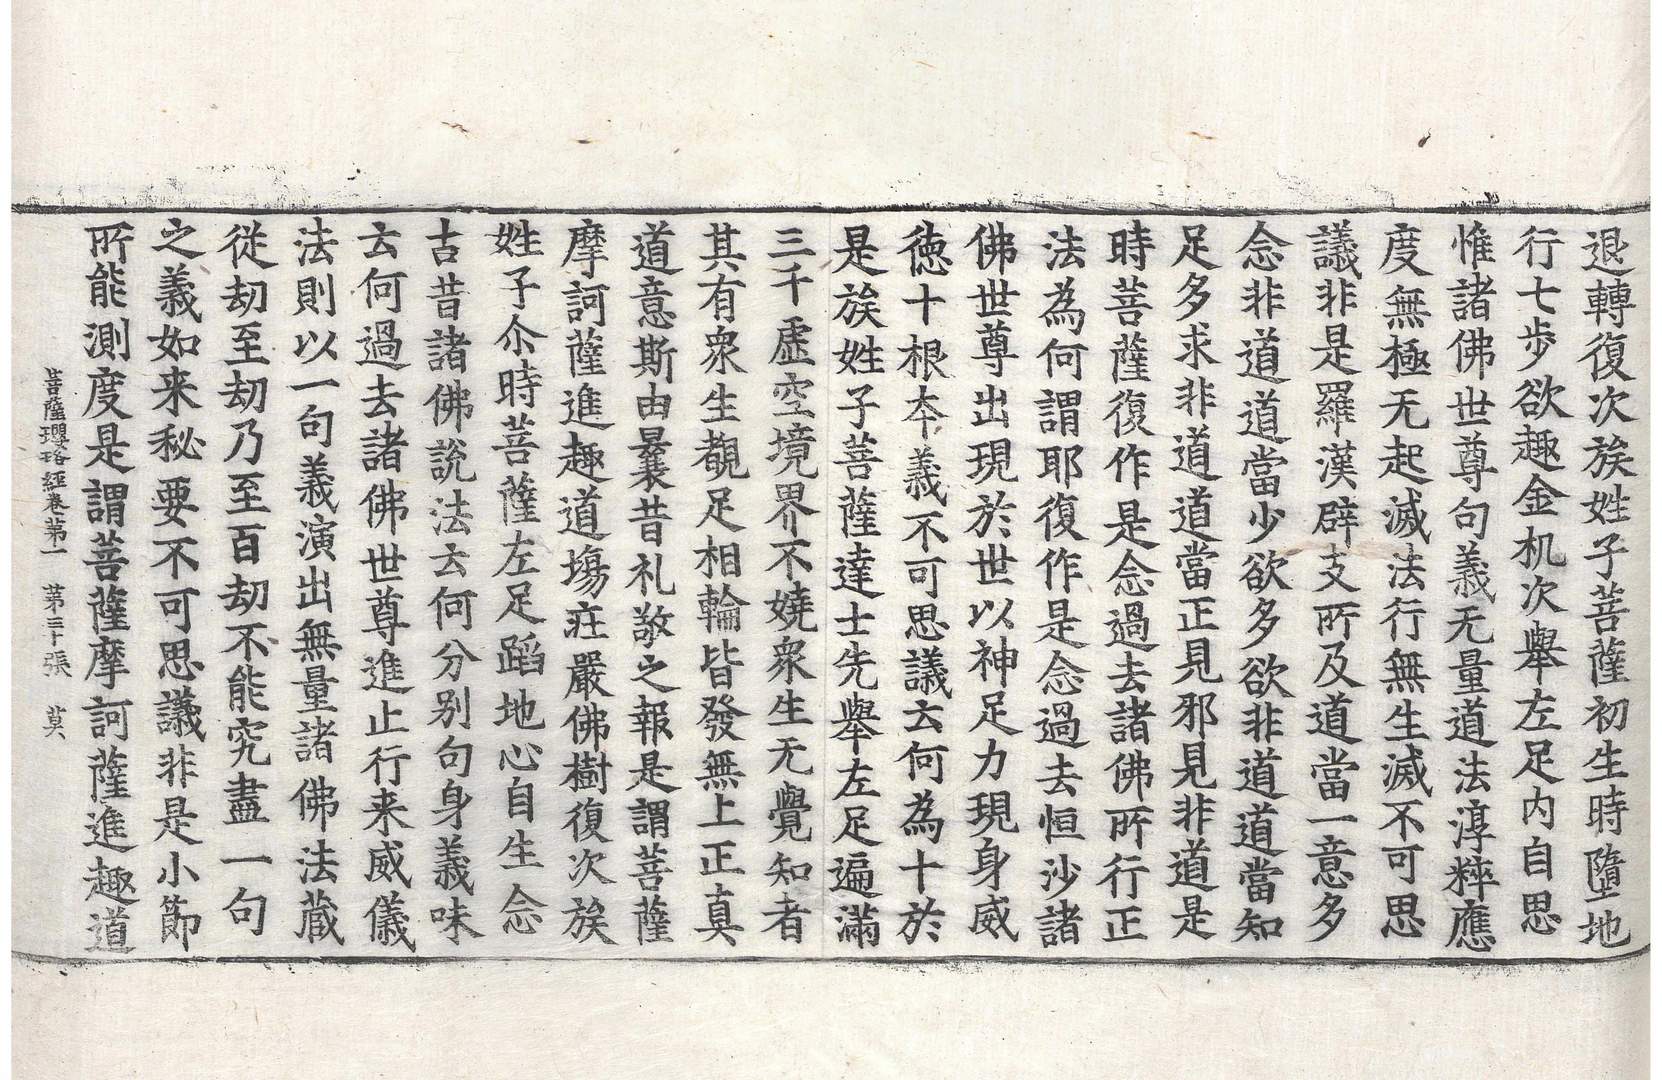 退轉復次族姓子菩薩初生時墮地
行七步欲趣金机次舉左足內自思
惟諸佛世尊句義无量道法淳粹應
度無極无起滅法行無生滅不可思
議非是羅漢辟支所及道當一意多
念非道道當少欲多欲非道道當知
足多求非道道當正見邪見非道是
時菩薩復作是念過去諸佛所行正
法為何謂耶復作是念過去恒沙諸
佛世尊出現於世以神足力現身威
德十根夲義不可思議云何為十於
是族姓子菩薩達士先舉左足遍滿
三千虛空境界不嬈衆生无覺知者
其有衆生覩足相輪皆發無上正真
道意斯由曩昔礼敬之報是謂菩薩
摩訶薩進趣道場莊嚴佛樹復次族
姓子尒時菩薩左足蹈地心自生念
古昔諸佛說法云何分別句身義味
云何過去諸佛世尊進止行来威儀
法則以一句義演出無量諸佛法藏
從劫至劫乃至百劫不能究盡一句
之義如来秘要不可思議非是小節
所能測度是謂菩薩摩訶薩進趣道
菩薩瓔珞經卷第一 第三十張 莫